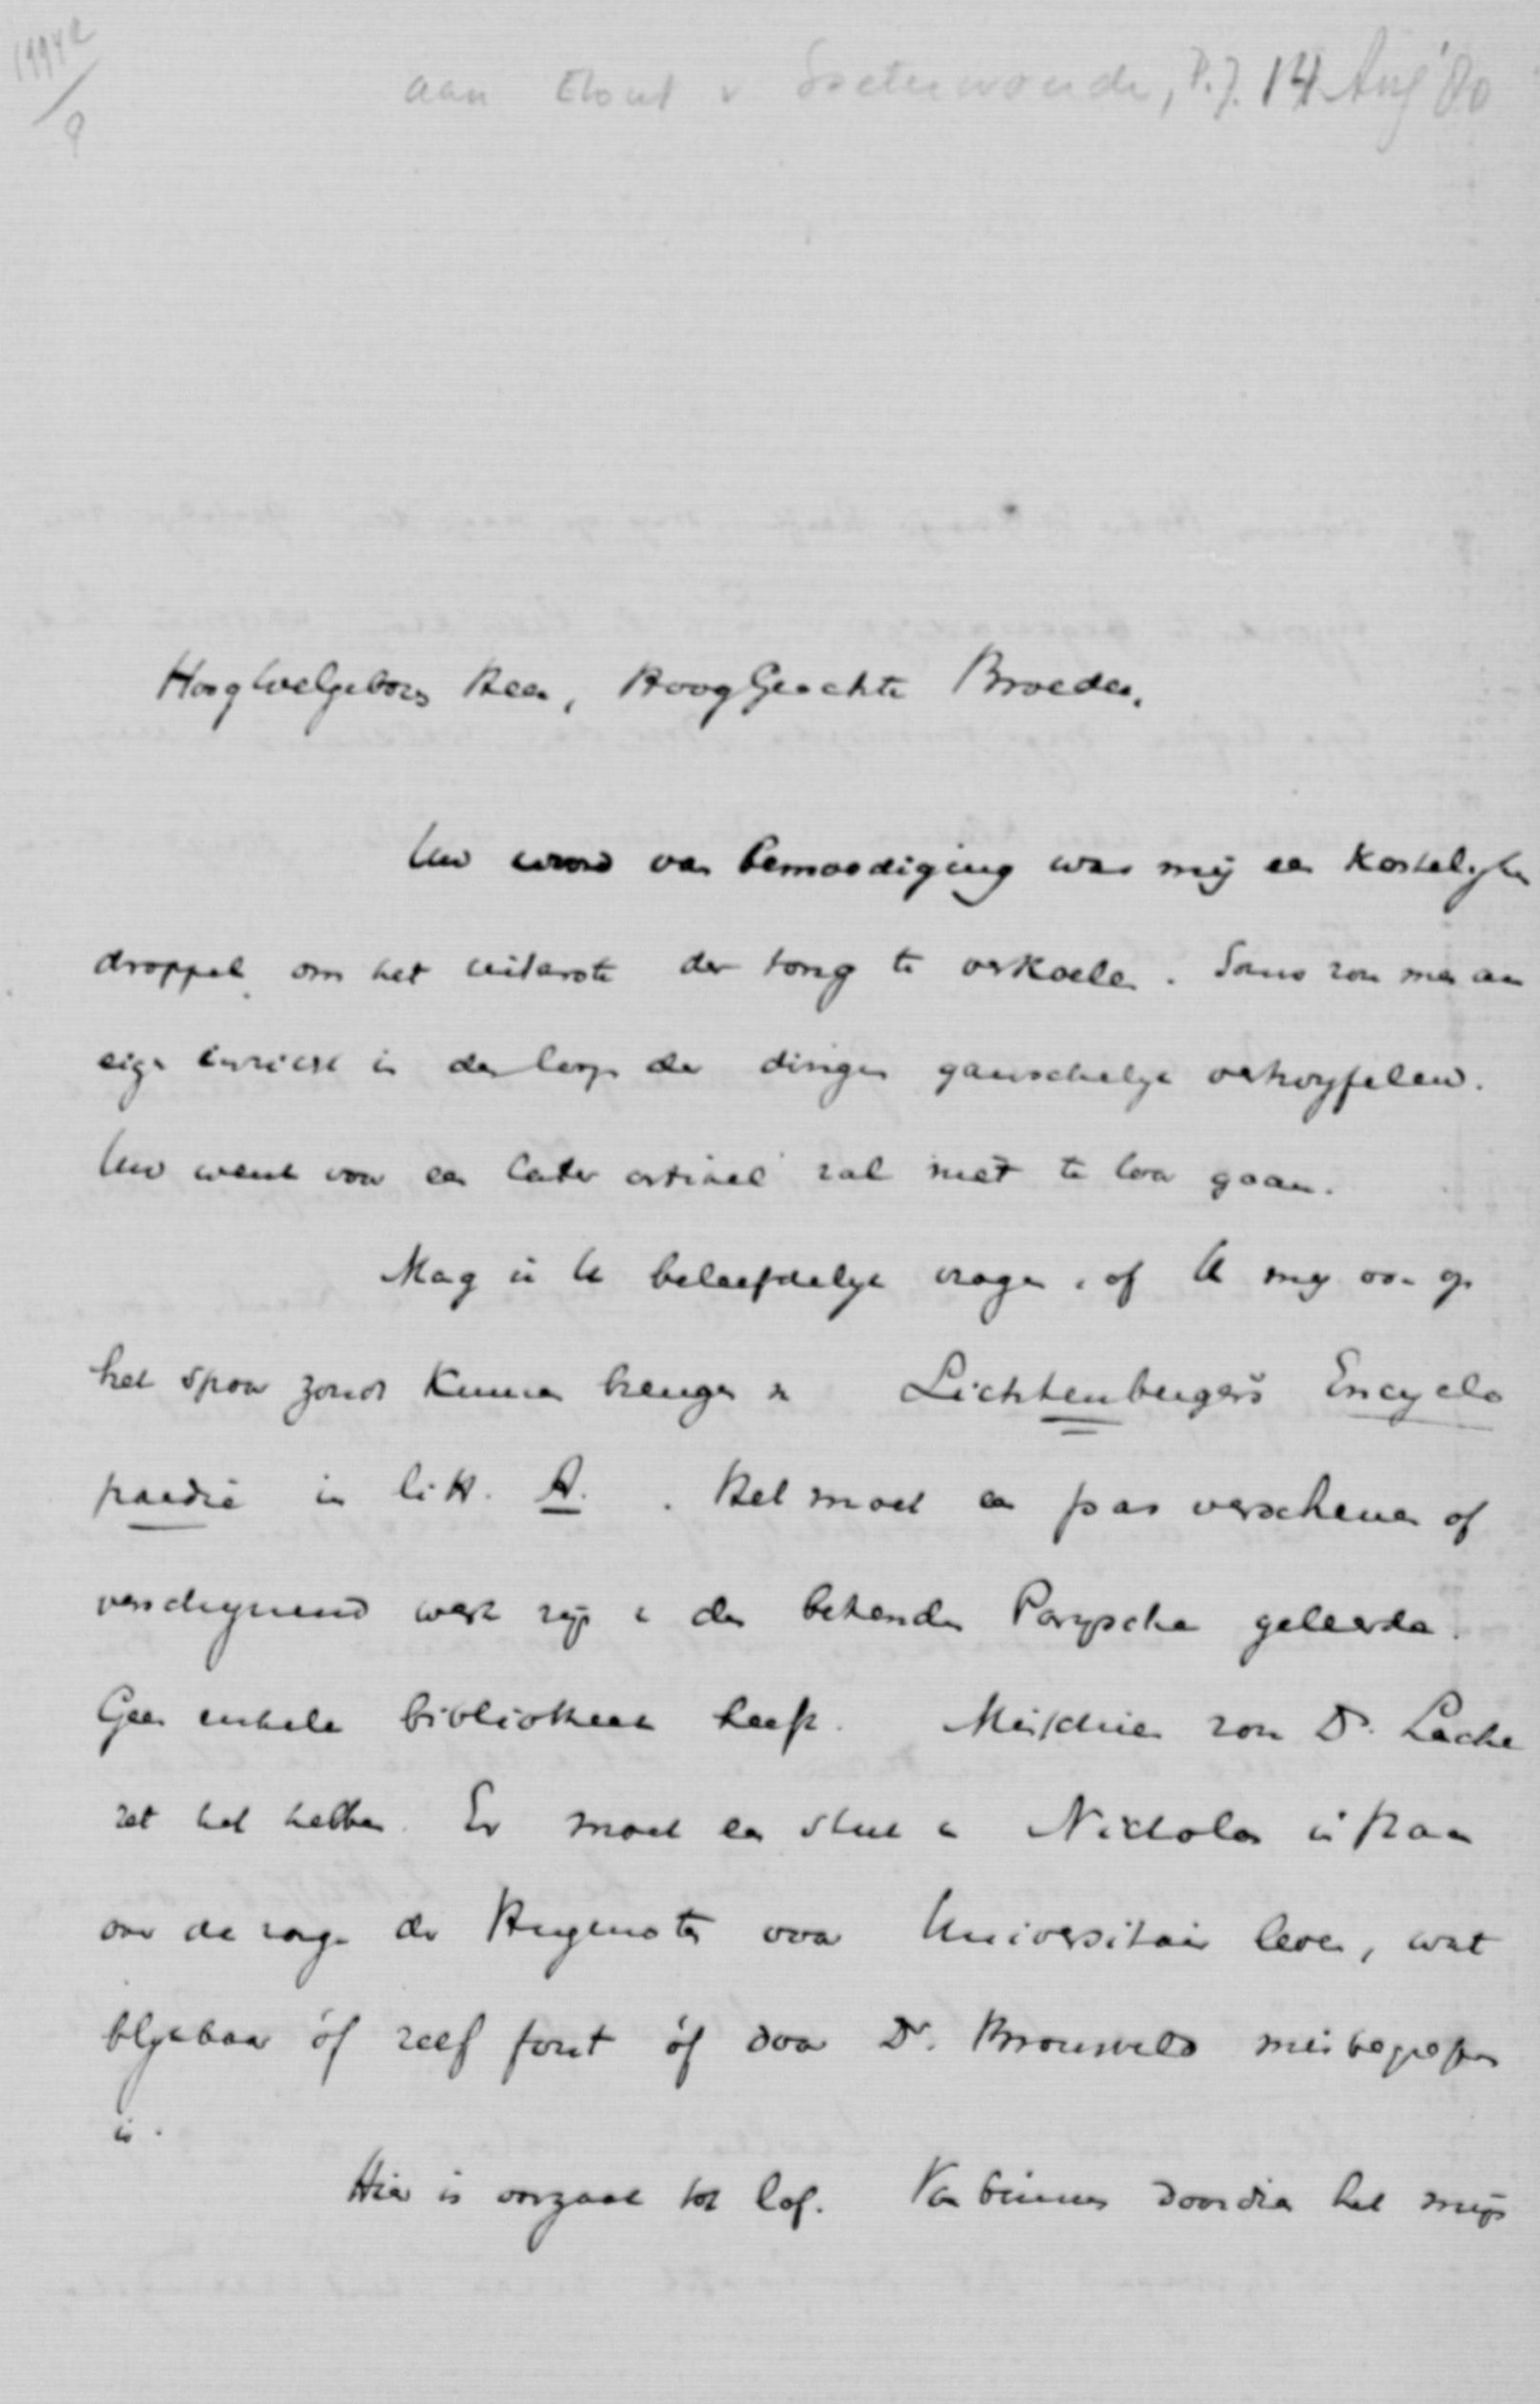 aan Elout v Soeterwoude, P.J. 14 Aug '80
HoogWelgeboren Heer, HoogGeachte Broeder,
Uw woord van bemoediging was mij een kostelijke
droppel om het uiterste der tong te verkoelen. Soms zou men aan
eigen inzicht in den loop der dingen ganschelijk vertwijfelen.
Uw wenk voor een later artikel zal niet te loor gaan.
Mag ik U beleefdelijk vragen, of U mij ook op
het spoor zoudt kunnen brengen v Lichtenberger's Encyclo
paedie in litt. A. . Het moet een pas verschenen of
verschijnend werk zijn v den bekenden Parijschen geleerde.
Geen enkele bibliotheek heeft. Misschien zou Dr.
het hebben. Er moet een stuk v Nicholas in staan
over de zorg der Hugenoten voor Universitair leven, wat
blijkbaar óf zelf fout óf door Dr. Bronsveld misbegrepen
is.
Hier is oorzaak tot lof. Van binnen doordien het mijn